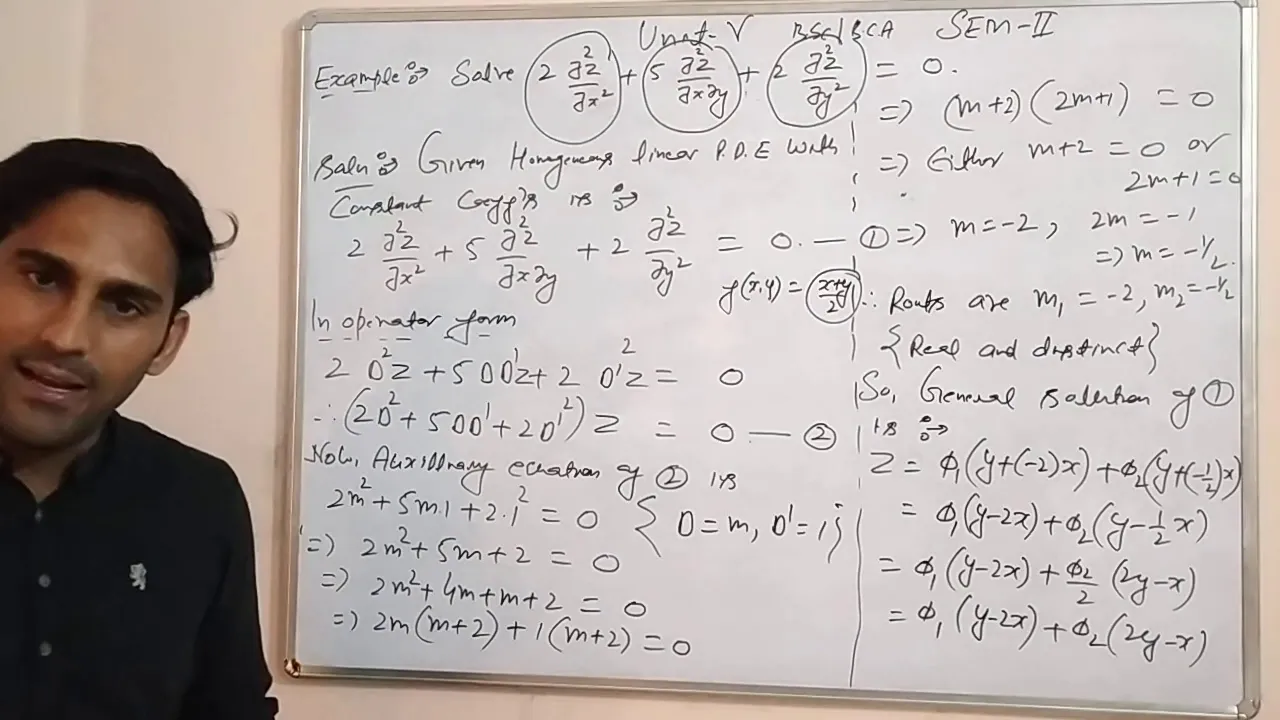 Unit-V BSC/BCA SEM-II
Example:→ Solve 2 ∂²z/∂x² + 5 ∂²z/∂x∂y + 2 ∂²z/∂y² = 0.
Soln:→ Given Homogeneous linear P.D.E with
Constant Coeff's is :→
2 ∂²z/∂x² + 5 ∂²z/∂x∂y + 2 ∂²z/∂y² = 0. — ①
f(x,y) = (x+y/2)
In operator form
2 D²z + 5DD'z + 2 D'²z = 0
∴ (2D² + 5DD' + 2D'²) z = 0 — ②
Now, Auxillary equation of ② is
2m² + 5m.1 + 2.1² = 0 { D = m, D' = 1 }
=> 2m² + 5m + 2 = 0
=> 2m² + 4m + m + 2 = 0
=> 2m(m+2) + 1(m+2) = 0
=> (m+2)(2m+1) = 0
=> Either m+2 = 0 or
2m+1 = 0
=> m = -2, 2m = -1
=> m = -1/2.
∴ Roots are m₁ = -2, m₂ = -1/2
{Real and distinct}
So, General solution of ①
is :→
z = ϕ₁(y+(-2)x) + ϕ₂(y+(-1/2)x)
= ϕ₁(y-2x) + ϕ₂(y-1/2 x)
= ϕ₁(y-2x) + ϕ₂/2 (2y-x)
= ϕ₁(y-2x) + ϕ₂(2y-x)